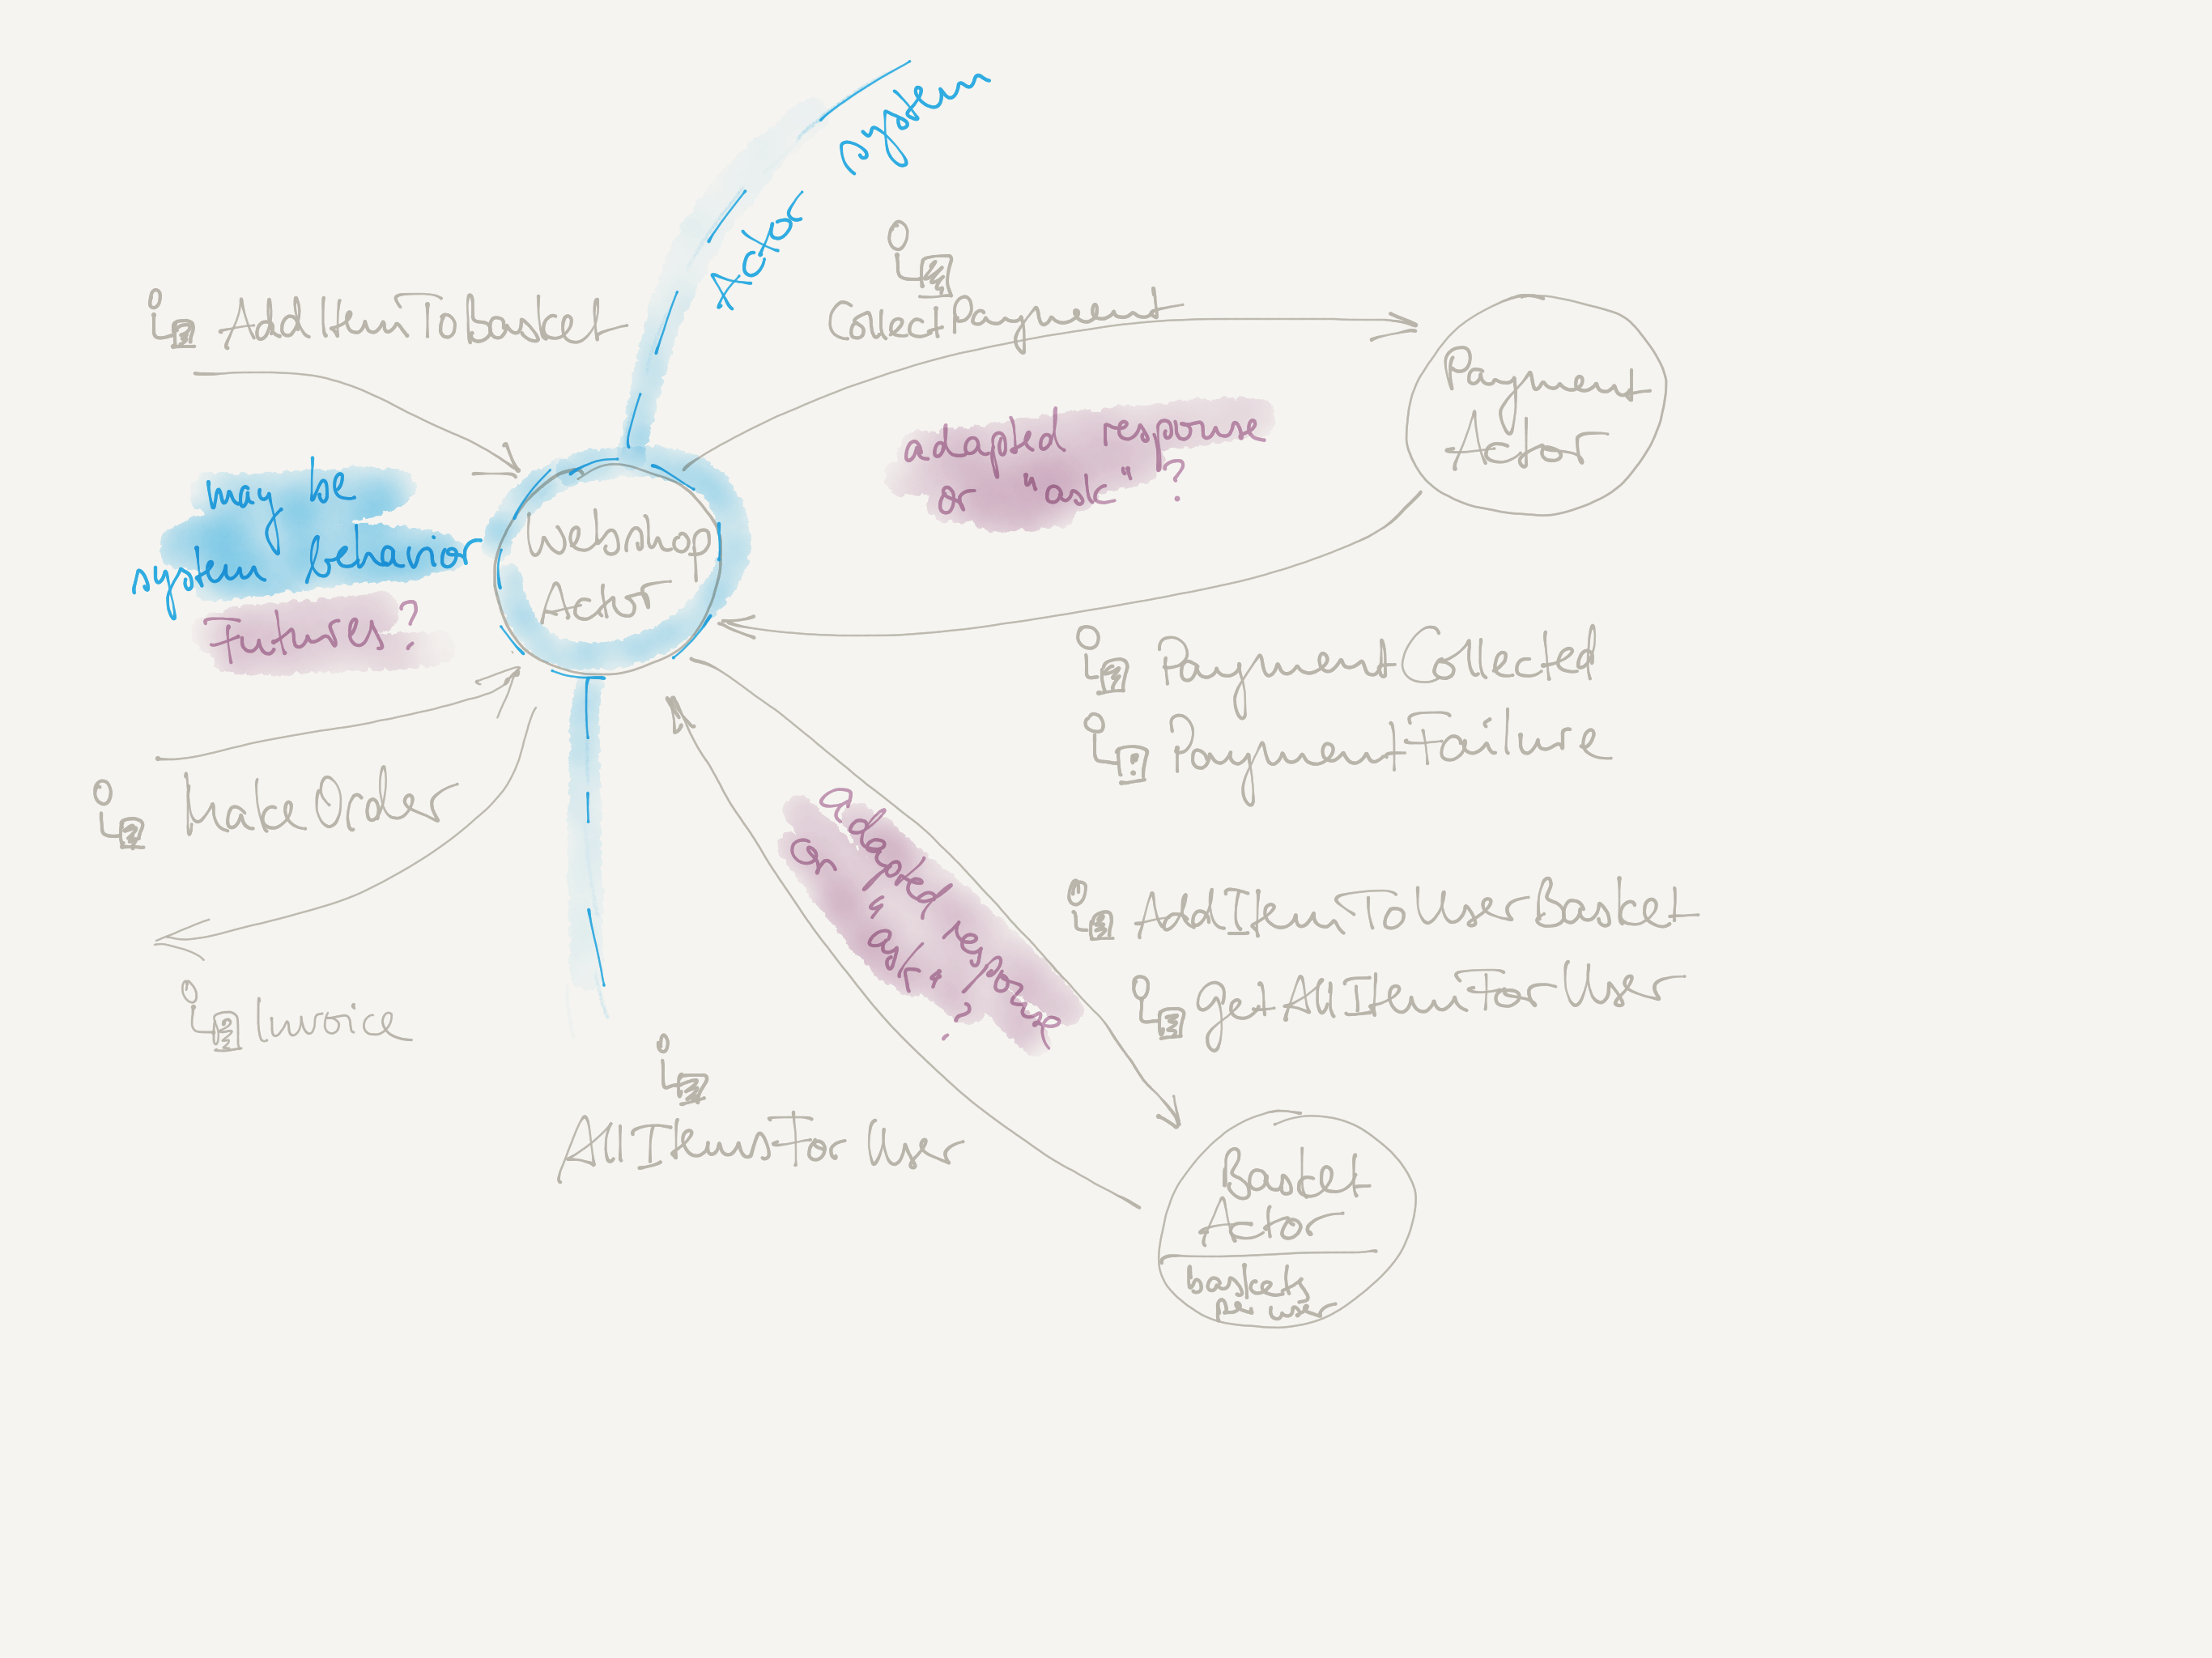 Actor system
AddItemToBasket
CollectPayment
Payment
Actor
adapted response
or "ask" ?
may be
system behavior
Futures?
Webshop
Actor
PaymentCollected
PaymentFailure
MakeOrder
adapted response
or "ask" ?
AddItemToUserBasket
GetAllItemForUser
Invoice
AllItemsForUser
Basket
Actor
baskets
per user